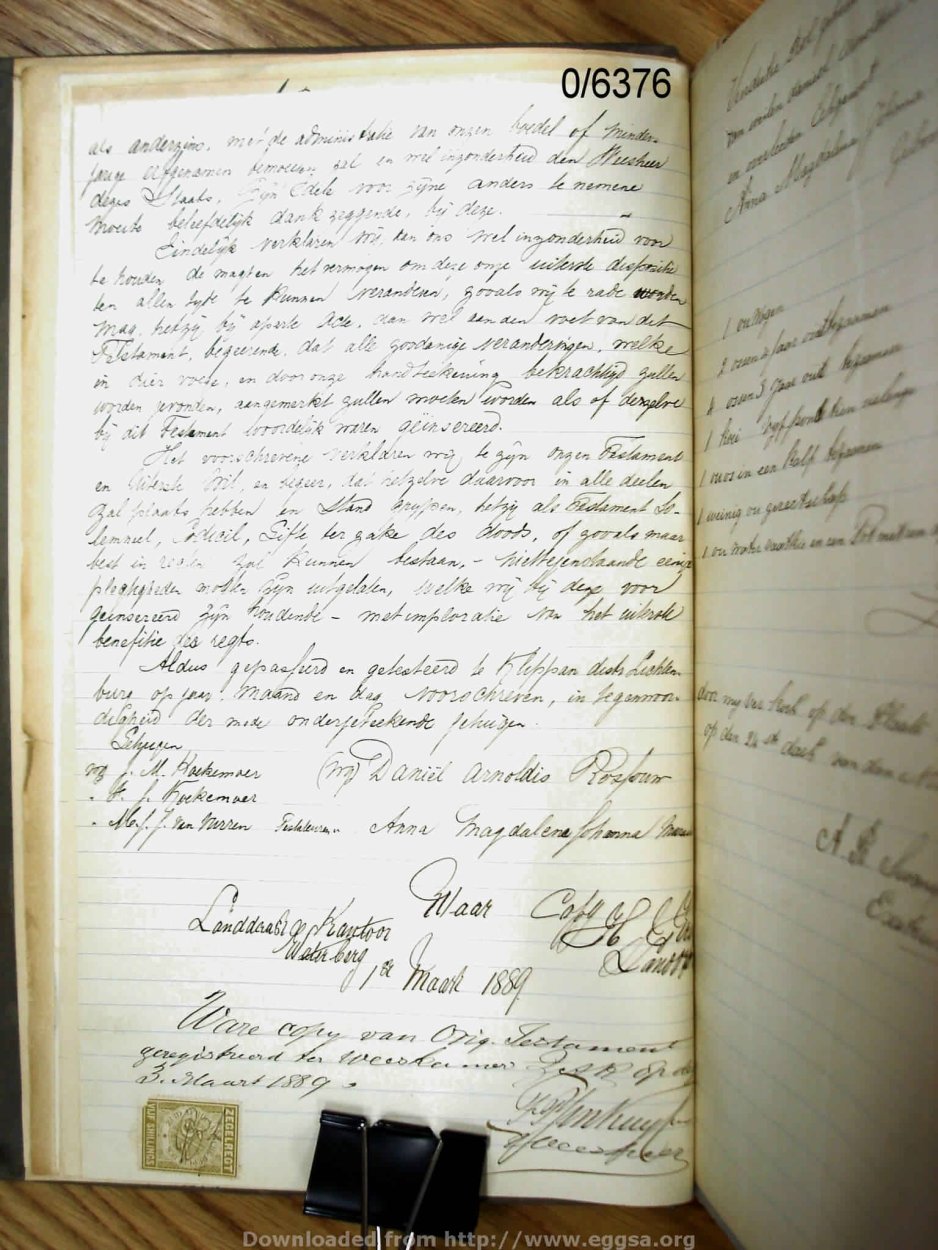 0/6376
als anderzins, met de administratie van onzen boedel of minder-
jarige Erfgenamen bemoeien zal en wel inzonderheid den Weesheer
dezes Staats, Zijn Edele voor zijne anders te nemene
moeite beleefdelijk dank zeggende, bij deze.
Eindelijk verklaren wij, aan ons wel inzonderheid voor
te houden de magt en het vermogen om deze onze uiterste dispositie
ten allen tyde te kunnen veranderen, zooals wij te rade worden
mag, hetzij bij aparte Acte, dan wel aan den voet van dit
Testament, begeerende, dat alle zoodanige veranderingen, welke
in dier voege, en door onze handteekening bekrachtigd zullen
worden gevonden, aangemerkt zullen moeten worden als of dezelve
bij dit Testament woordelijk waren geïnsereerd.
Het voorschrevene verklaren wij te zijn onzen Testament
en Uiterste Wil, en begeer, dat hetzelve daarvoor in alle deelen
zal plaats hebben en Stand grijpen, hetzij als Testament So-
lemneel, Codicil, Gifte ter zake des doods, of zooals maar
best in regten zal kunnen bestaan, - niettegenstaande eenige
plegtigheden mogten zijn uitgelaten, welke wij bij deze voor
geinsereerd zijn houdende - met imploratie van het uiterste
benefitie des regts.
Aldus gepasseerd en getesteerd te Klippan distr. Lichten-
burg op jaar, maand en dag voorschreven, in tegenwoor-
digheid der mede ondergeteekende getuigen.
Getuigen
wg J. M. Koekemoer (wg) Daniël Arnoldis Rossouw
" J. J. Koekemoer
" J. van Vurren Testateuren " Anna Magdalena Johanna
Waar Copy
Landdrost Kantoor
Waterberg
1ste Maart 1889
Ware copy van Orig. Testament
geregistreerd ter Weeskamer op de
3. Maart 1889.
Weesheer
ZEGELREGT
VIJF SHILLINGS
van wijlen
Anna Magdalena Johanna
1 ou wagen
2 ossen 2 jaar oud
4 ossen 3 jaar oud
1 Koei
1 vaars en een Kalf
1 weinig ou gereetschap
1 ou water vaatkie en een Pot met een
door my op den Plaats
op den 24ste dach van den
Downloaded from http://www.eggsa.org